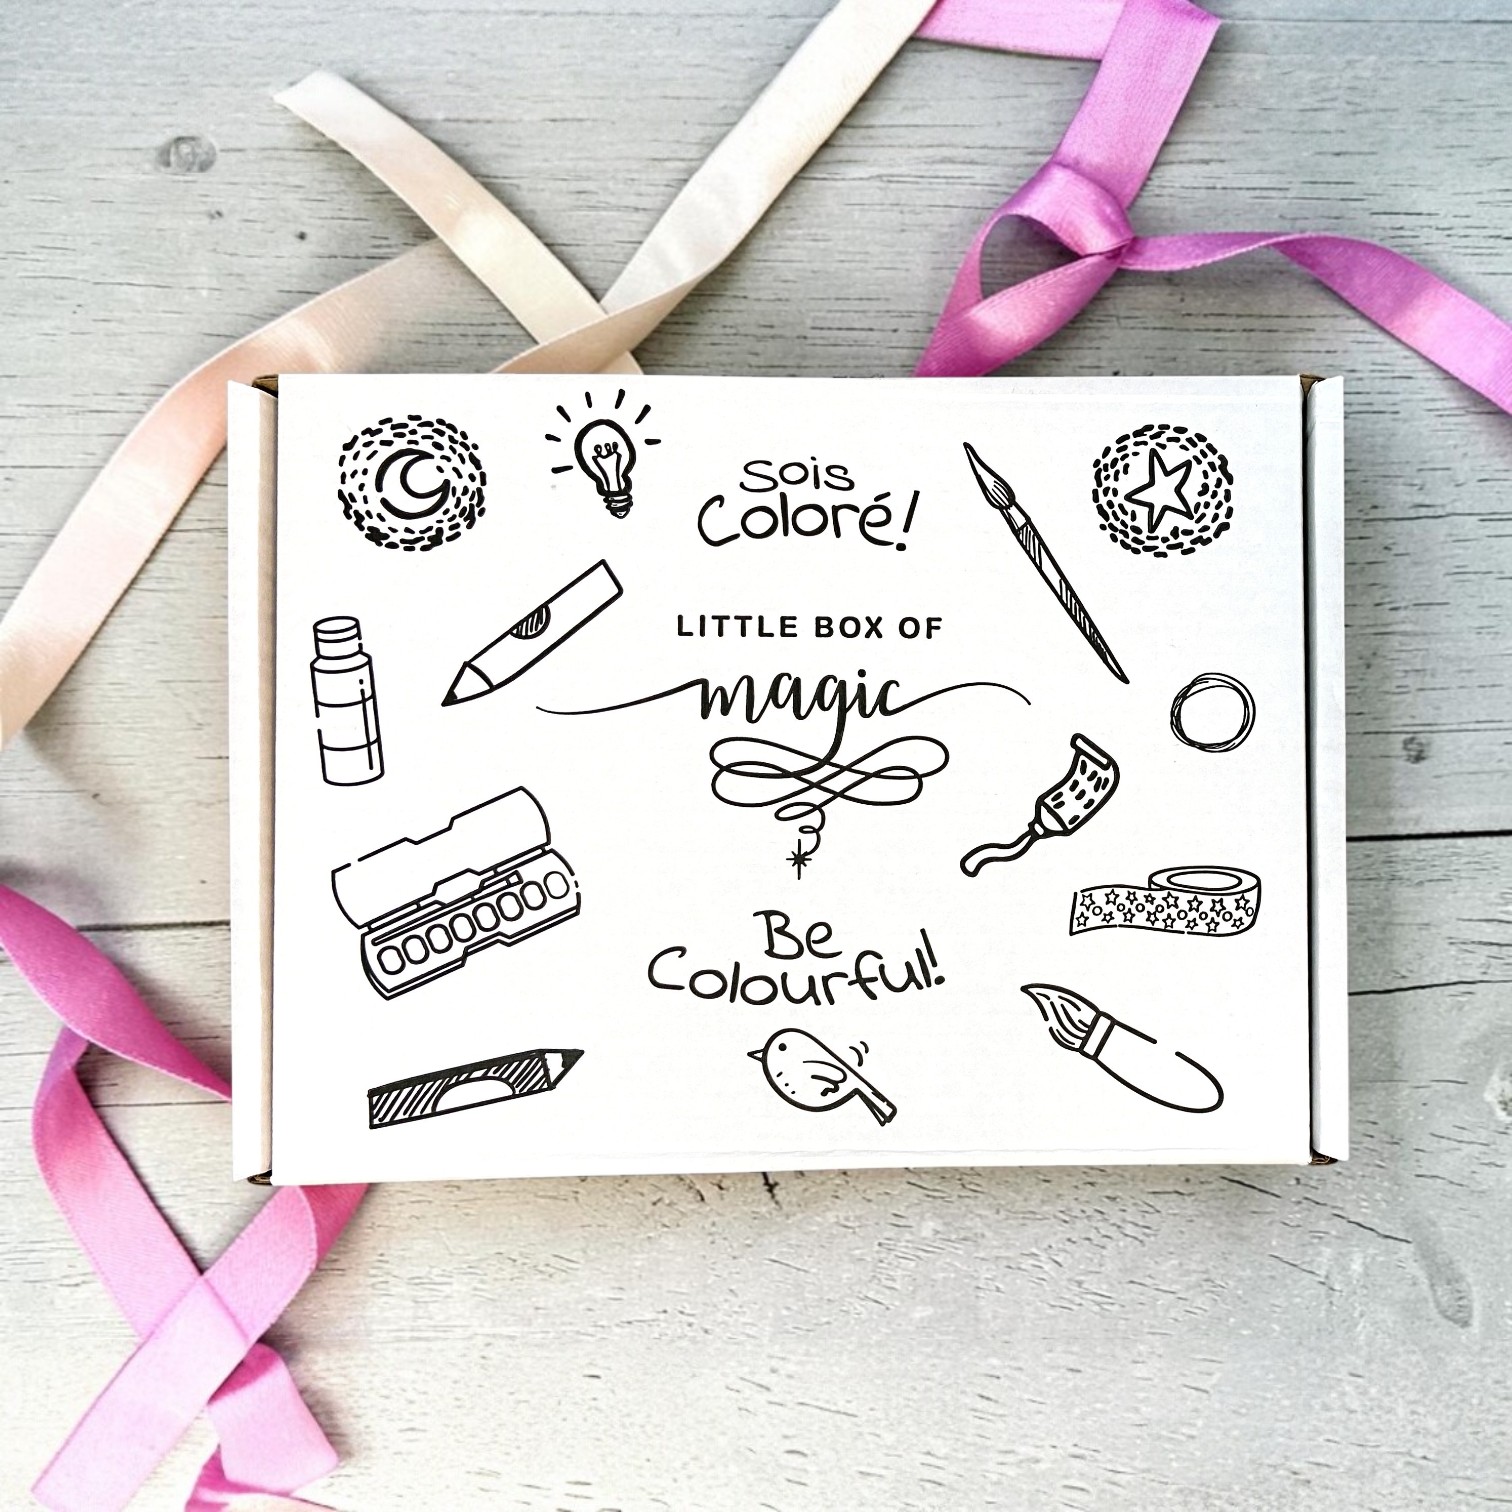 sois
Coloré!
LITTLE BOX OF
magic
Be
Colourful!